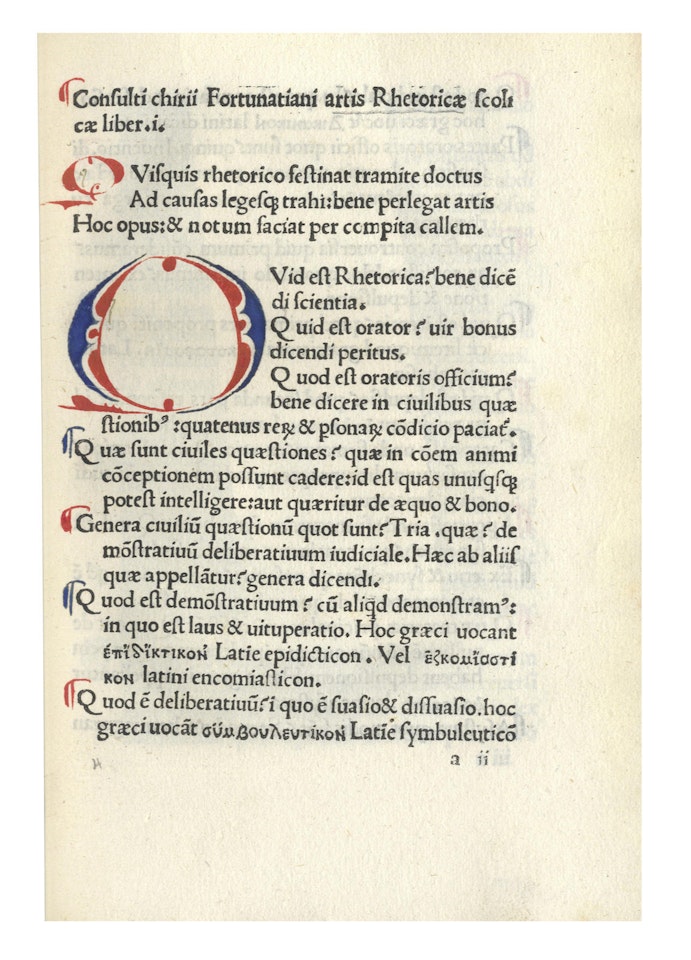 Conſulti chirii Fortunatiani artis Rhetoricæ ſcoli
cæ liber.i.
QViſquis rhetorico feſtinat tramite doctus
Ad cauſas legeſqꝫ trahi:bene perlegat artis
Hoc opus:& notum faciat per compita callem.
QVid eſt Rhetorica? bene dicē
di ſcientia.
Quid eſt orator? uir bonus
dicendi peritus.
Quod eſt oratoris officium?
bene dicere in ciuilibus quæ
ſtionibꝰ :quatenus reꝝ & pſonaꝝ cōdicio paciat᷑.
Quæ ſunt ciuiles quæſtiones? quæ in cōem animi
cōceptionem poſſunt cadere:id eſt quas unuſqſqꝫ
poteſt intelligere:aut quæritur de æquo & bono.
Genera ciuiliū quæſtionū quot ſunt? Tria .quæ? de
mōſtratiuū deliberatiuum iudiciale. Hæc ab aliiſ
quæ appellātur? genera dicendi.
Quod eſt demōſtratiuum? cū aliqd demonſtramꝰ:
in quo eſt laus & uituperatio. Hoc græci uocant
ἐπιδικτικον Latie epidicticon. Vel εξκομισστι
κον latini encomiaſticon.
Quod ē deliberatiuū? i quo ē ſuaſio& diſſuaſio. hoc
græci uocāt σύμβουλευτικον Latīe ſymbuleuticō
a ii